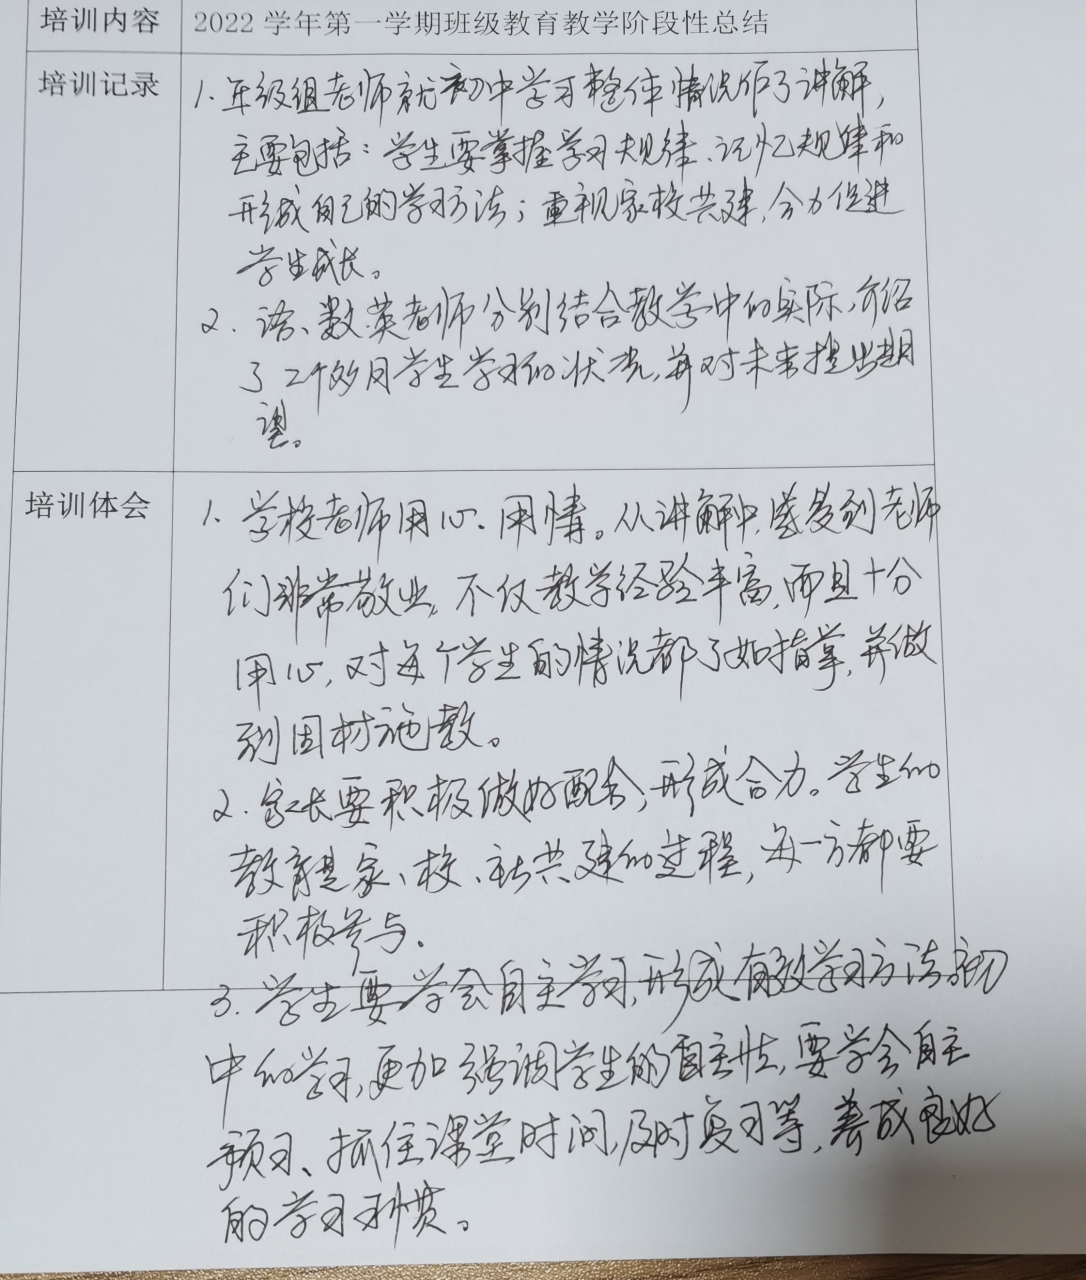 培训内容 2022 学年第一学期班级教育教学阶段性总结
培训记录 1. 年级组老师就初中学习整体情况作了讲解,
主要包括：学生要掌握学习规律、记忆规律和
形成自己的学习方法；重视家校共建,合力促进
学生成长。
2. 语、数、英老师分别结合教学中的实际,介绍
了2个多月学生学习的状况,并对未来提出期
望。
培训体会 1. 学校老师用心、用情。从讲解中,感受到老师
们非常敬业,不仅教学经验丰富,而且十分
用心,对每个学生的情况都了如指掌,并做
到因材施教。
2. 家长要积极做好配合,形成合力。学生的
教育是家、校、社共建的过程,每一方都要
积极参与.
3. 学生要学会自主学习,形成有效学习方法.初
中的学习,更加强调学生的自主性,要学会自主
预习、抓住课堂时间,及时复习等,养成良好
的学习习惯。